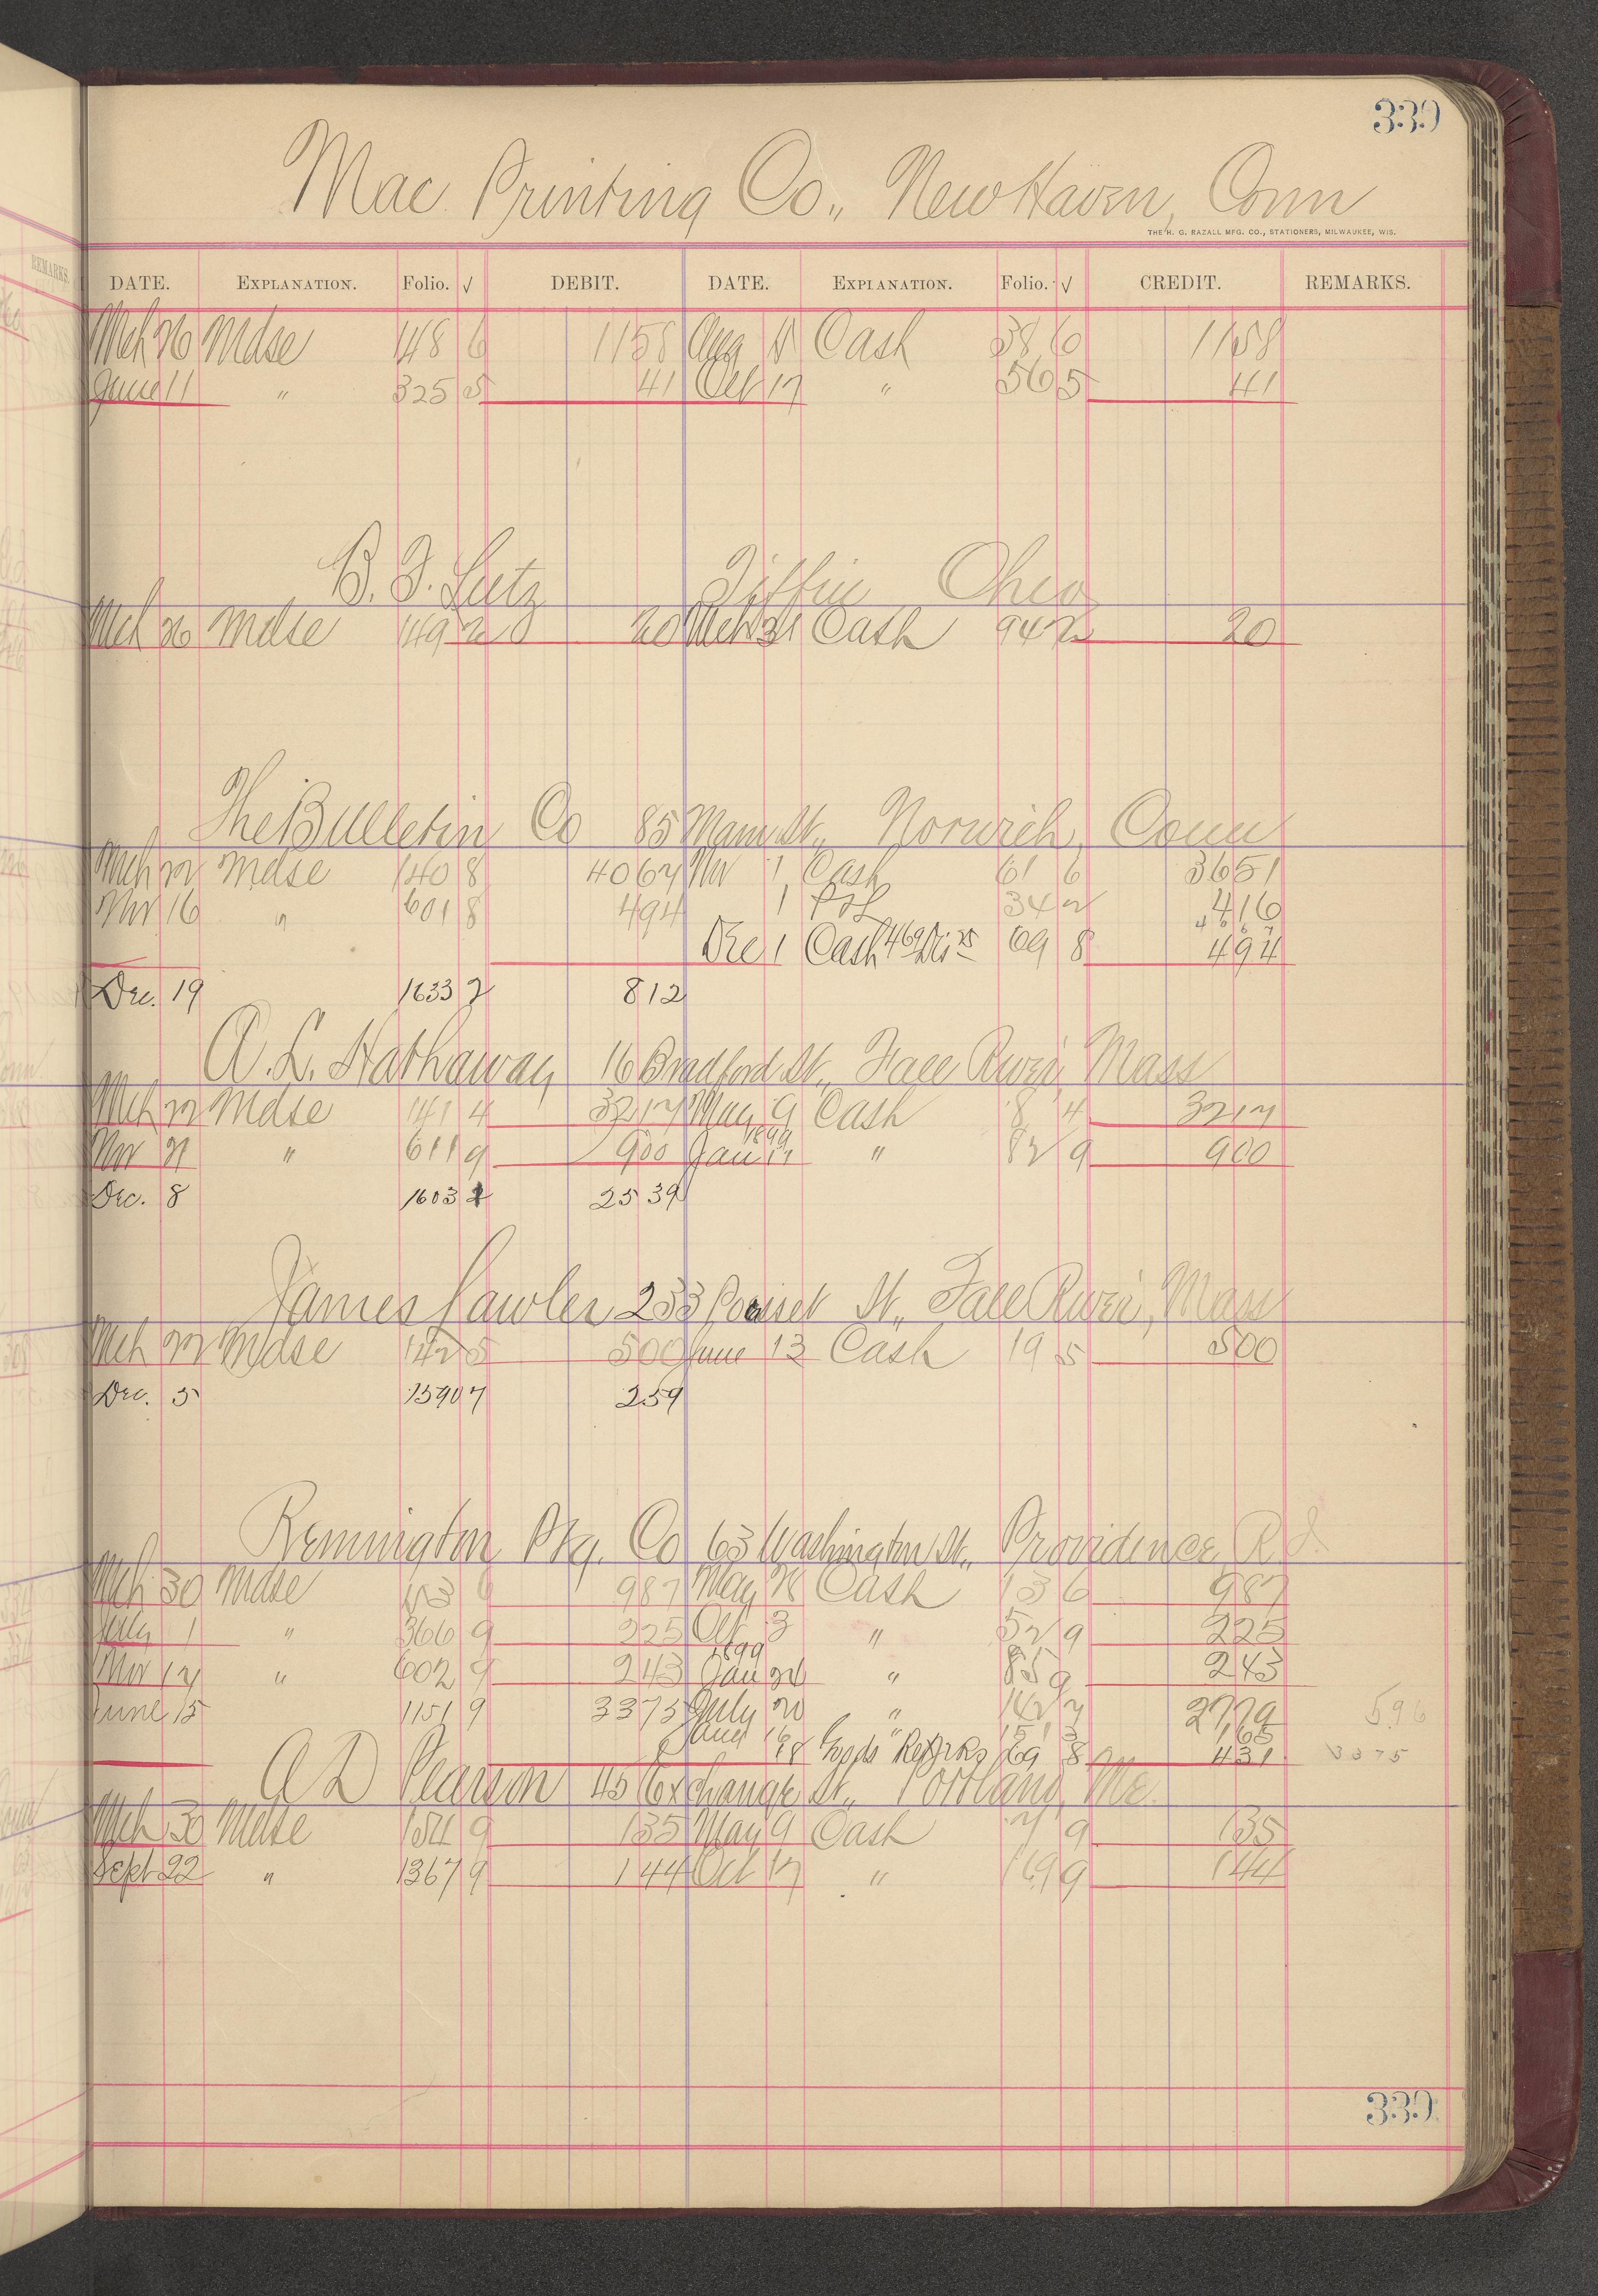 339
Mac Printing Co., New Haven, Conn
THE H. G. RAZALL MFG. CO., STATIONERS, MILWAUKEE, WIS.
DATE. EXPLANATION. Folio. √ DEBIT. DATE. EXPLANATION. Folio. √ CREDIT. REMARKS.
Mch 26 Mdse 148 6 1158 Aug 15 Cash 38 6 1158
June 11 " 325 5 41 Oct 17 " 56 5 41
B. F. Lutz Tiffin Ohio
Mch 26 Mdse 149 2 20 Mch 31 Cash 94 2 20
The Bulletin Co 85 Main St., Norwich, Conn
Mch 22 Mdse 140 8 4067 Nov 1 Cash 61 6 3651
Nov 16 " 601 8 494 1 P&L 34 2 416
4067
Dec 1 Cash 469 Dis 25 69 8 494
Dec. 19 1633 2 812
A. L. Hathaway 16 Bradford St., Fall River Mass
Mch 22 Mdse 141 4 3217 May 9 Cash 8 4 3217
1899
Nov 21 " 611 9 900 Jan 17 " 82 9 900
Dec. 8 1603 2539
James Lawler 233 St., Fall River, Mass
Mch 22 Mdse 142 5 500 June 13 Cash 19 5 500
Dec. 5 1590 7 259
Remington Ptg. Co 63 Washington St., Providence, R I.
Mch 30 Mdse 153 6 987 May 28 Cash 13 6 987
July 1 " 366 9 225 Oct 3 " 52 9 225
1899
Nov 17 " 602 9 243 Jan 26 " 85 9 243
June 15 1151 9 3375 July 20 " 142 7 2779 596
151 3 165
Goods 69 8 431 3375
A D Pearson 45 Exchange St., Portland, Me.
Mch 30 Mdse 154 9 135 May 9 Cash 7 9 135
Sept 22 " 1367 9 144 Oct 17 " 169 9 144
339